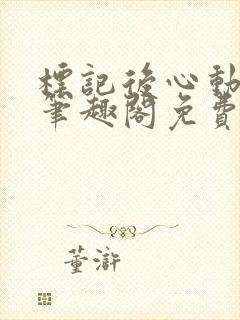 標記後心動
筆趣閣免費
董滸